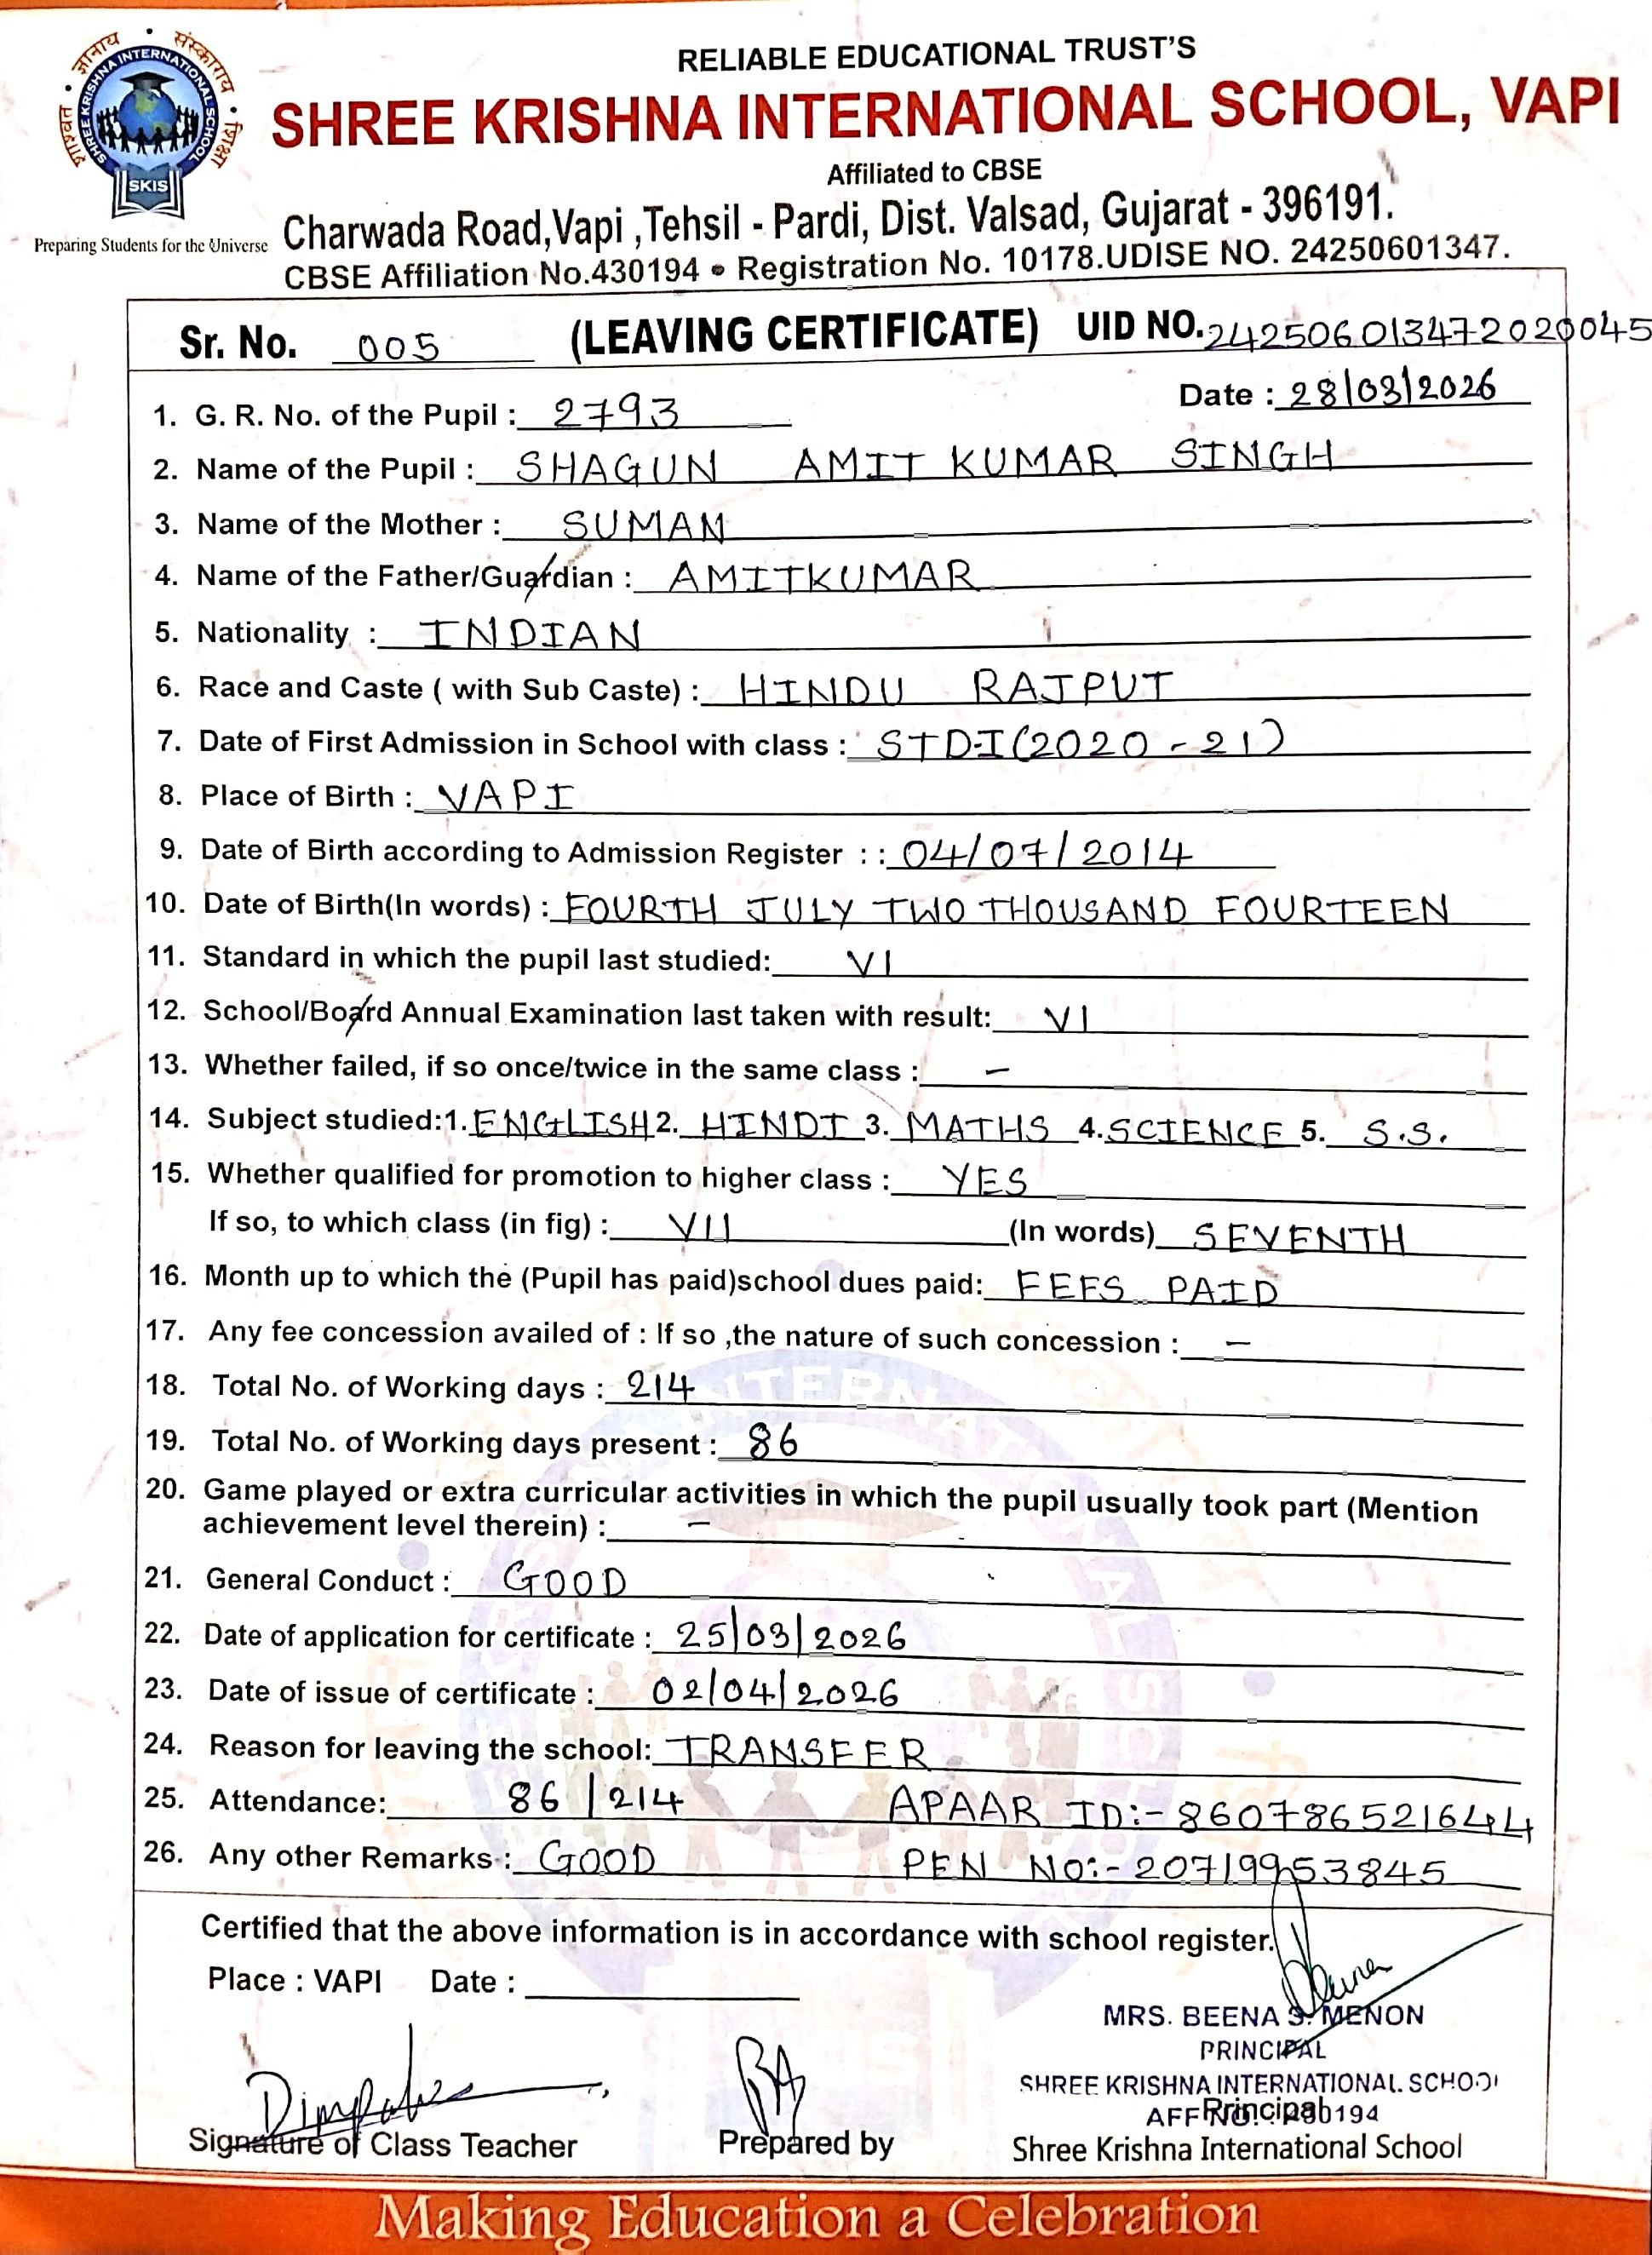 शाश्वत • ज्ञानाय • संस्काराय • शिक्षा
SHREE KRISHNA INTERNATIONAL SCHOOL
SKIS
Preparing Students for the Universe
RELIABLE EDUCATIONAL TRUST'S
SHREE KRISHNA INTERNATIONAL SCHOOL, VAPI
Affiliated to CBSE
Charwada Road,Vapi ,Tehsil - Pardi, Dist. Valsad, Gujarat - 396191.
CBSE Affiliation No.430194 • Registration No. 10178.UDISE NO. 24250601347.
Sr. No. 005 (LEAVING CERTIFICATE) UID NO. 242506013472020045
Date : 28/03/2026
1. G. R. No. of the Pupil : 2793
2. Name of the Pupil : SHAGUN AMIT KUMAR SINGH
3. Name of the Mother : SUMAN
4. Name of the Father/Guardian : AMITKUMAR
5. Nationality : INDIAN
6. Race and Caste ( with Sub Caste) : HINDU RAJPUT
7. Date of First Admission in School with class : STD-I (2020-21)
8. Place of Birth : VAPI
9. Date of Birth according to Admission Register : : 04/07/2014
10. Date of Birth(In words) : FOURTH JULY TWO THOUSAND FOURTEEN
11. Standard in which the pupil last studied: VI
12. School/Board Annual Examination last taken with result: VI
13. Whether failed, if so once/twice in the same class : -
14. Subject studied:1. ENGLISH 2. HINDI 3. MATHS 4. SCIENCE 5. S.S.
15. Whether qualified for promotion to higher class : YES
If so, to which class (in fig) : VII (In words) SEVENTH
16. Month up to which the (Pupil has paid)school dues paid: FEES PAID
17. Any fee concession availed of : If so ,the nature of such concession : -
18. Total No. of Working days : 214
19. Total No. of Working days present : 86
20. Game played or extra curricular activities in which the pupil usually took part (Mention
achievement level therein) : -
21. General Conduct : GOOD
22. Date of application for certificate : 25/03/2026
23. Date of issue of certificate : 02/04/2026
24. Reason for leaving the school: TRANSFER
25. Attendance: 86/214 APAAR ID:- 860786521644
26. Any other Remarks : GOOD PEN NO:- 20719953845
Certified that the above information is in accordance with school register.
Place : VAPI Date :
MRS. BEENA S. MENON
PRINCIPAL
SHREE KRISHNA INTERNATIONAL SCHOOL
AFF NO. : 430194
Principal
Signature of Class Teacher Prepared by Shree Krishna International School
Making Education a Celebration